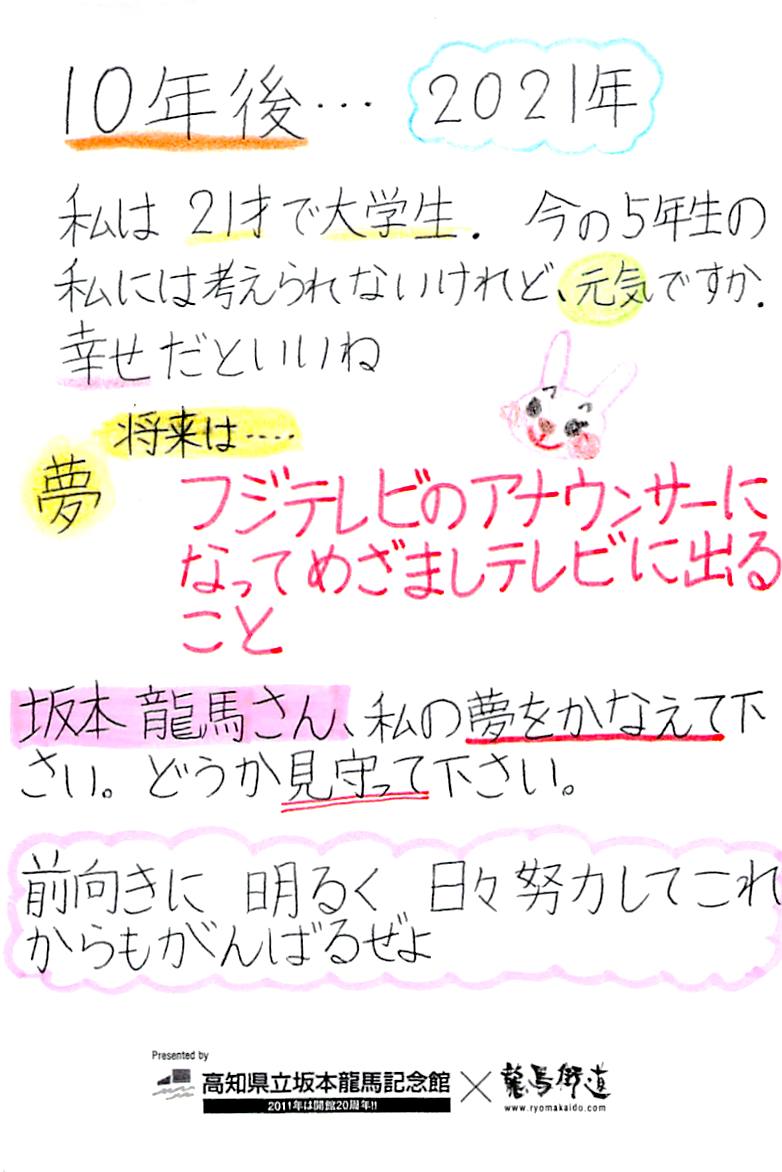 10年後… 2021年
私は 21才で大学生. 今の5年生の
私には考えられないけれど、元気ですか.
幸せだといいね
将来は‥‥
夢
フジテレビのアナウンサーに
なってめざましテレビに出る
こと
坂本 龍馬さん、私の夢をかなえて下
さい。どうか見守って下さい。
前向きに 明るく 日々努力してこれ
からもがんばるぜよ
Presented by
高知県立坂本龍馬記念館 × 龍馬街道
2011年は開館20周年!!
www.ryomakaido.com